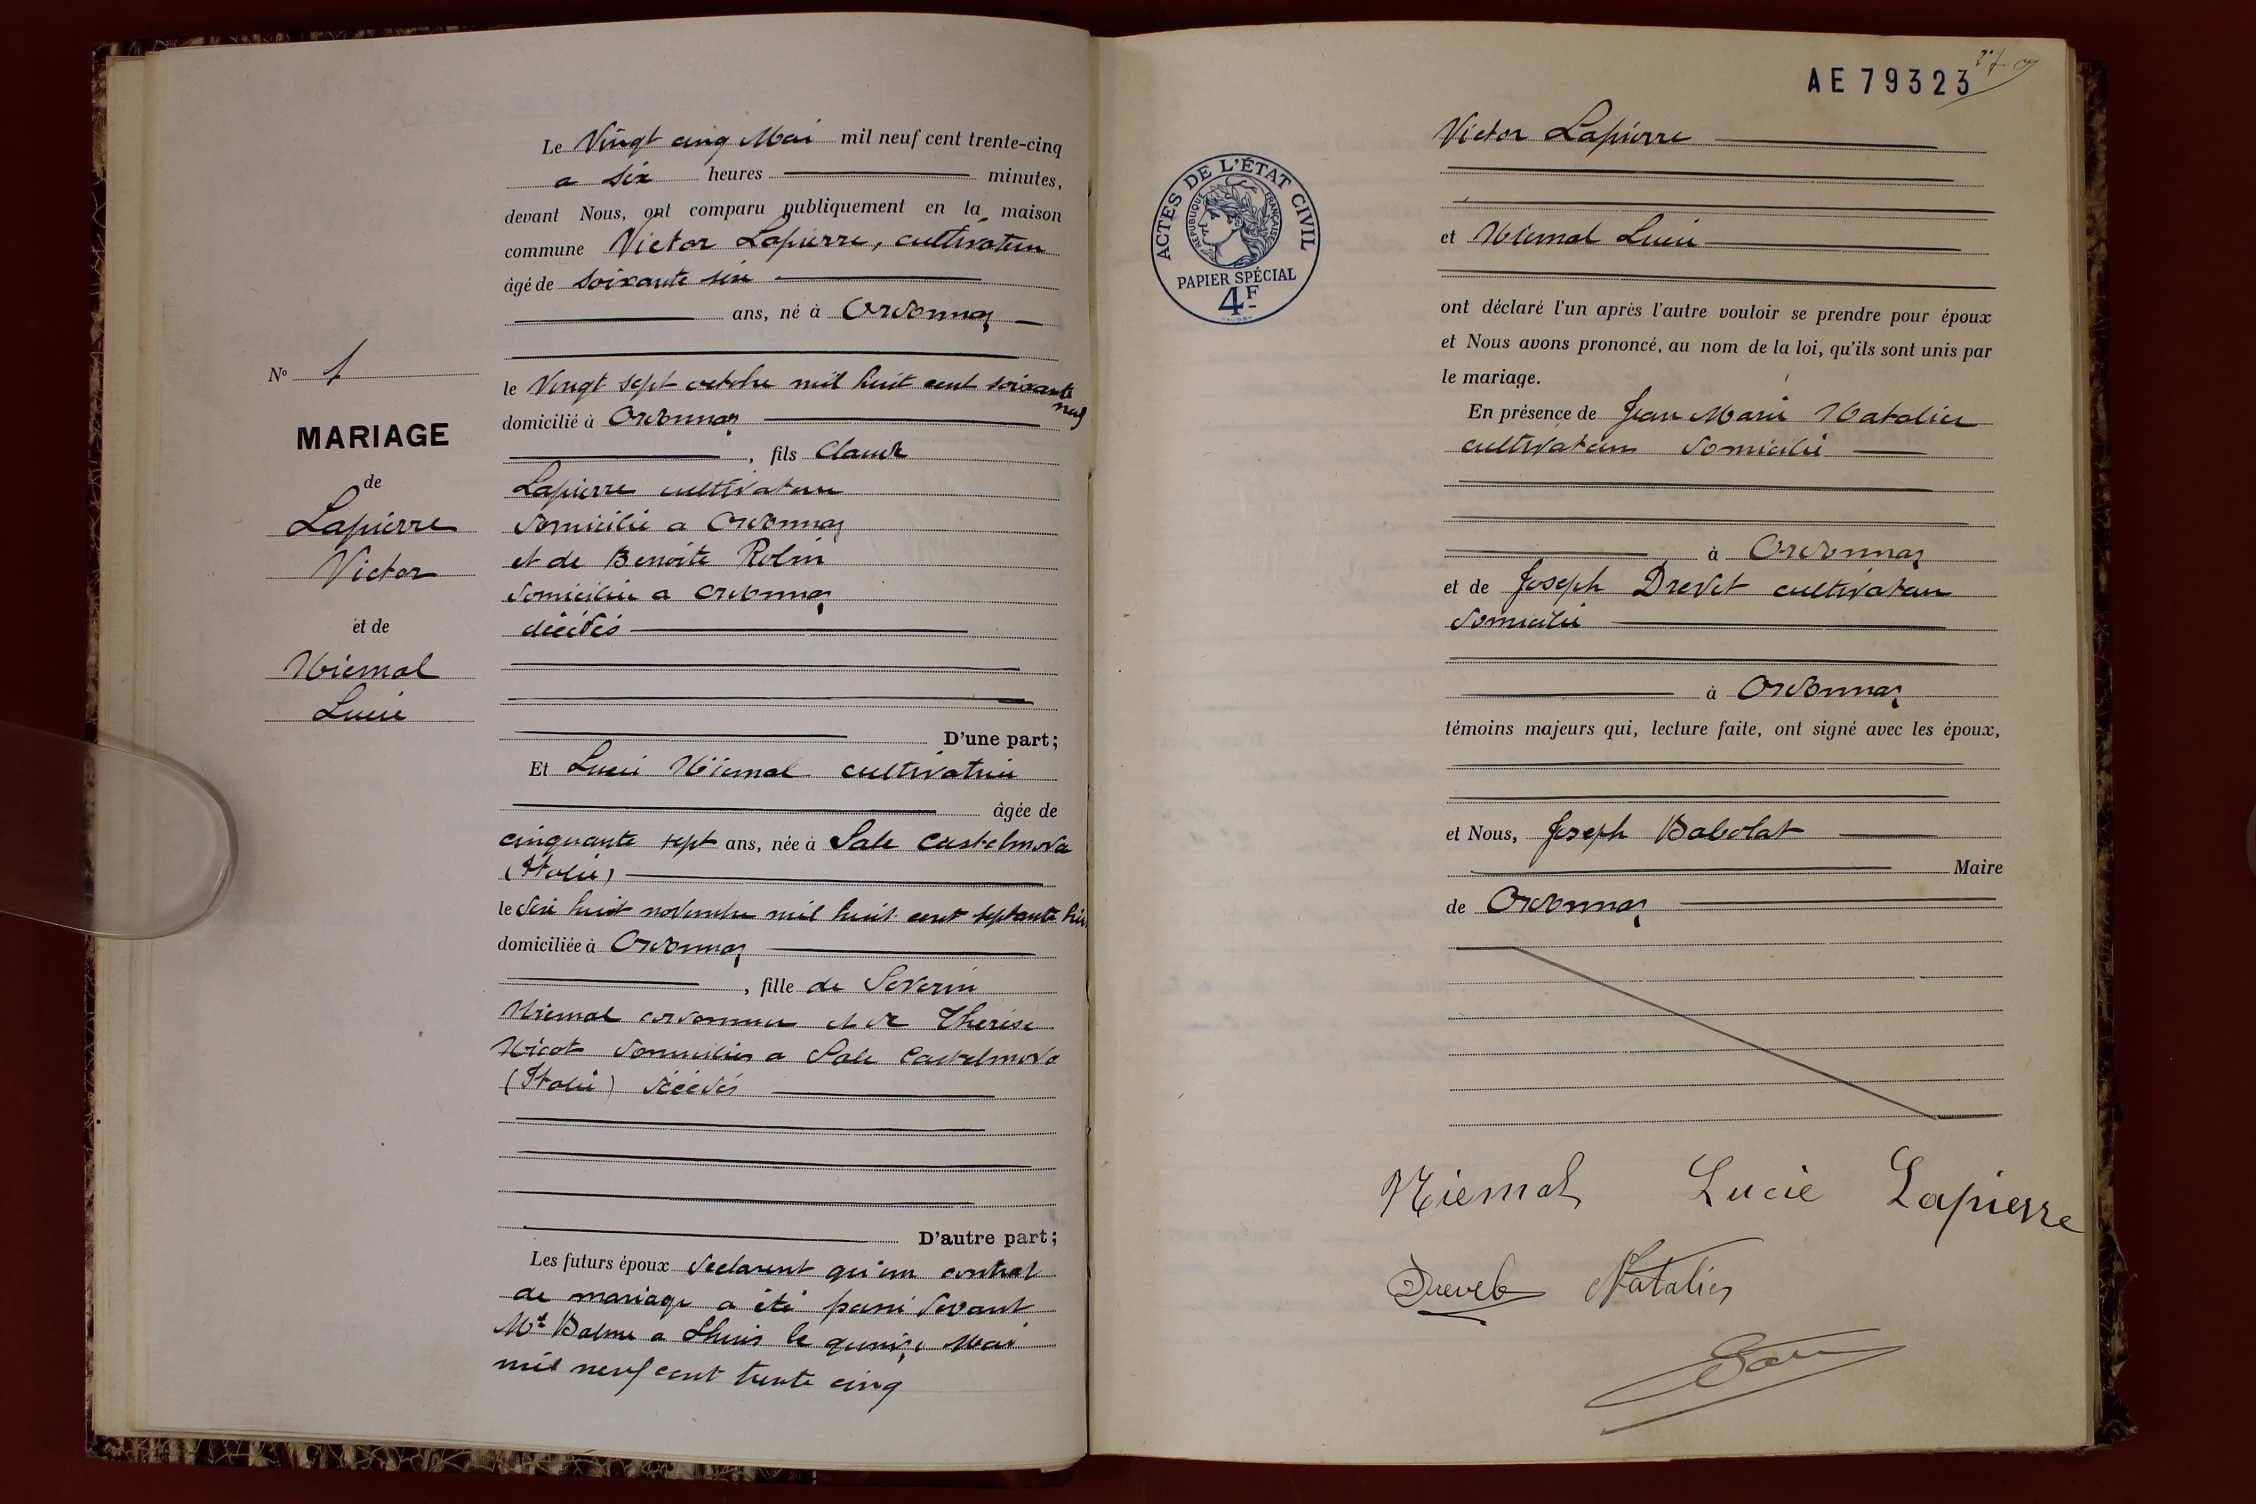 Le Vingt cinq Mai mil neuf cent trente-cinq
a six heures minutes,
devant Nous, ont comparu publiquement en la maison
commune Victor Lapierre, cultivateur
âgé de soixante six
ans, né à Ordonnaz
le Vingt sept octobre mil huit cent soixante
neuf
domicilié à Ordonnaz
, fils Claude
Lapierre cultivateur
domicilié a Ordonnaz
et de Benoite Robin
domiciliée a Ordonnaz
décédés
D'une part;
Et Lucie Niemal cultivatrice
âgée de
cinquante sept ans, née à Sale Castelnovo
(Italie)
le dix huit novembre mil huit cent septante huit
domiciliée à Ordonnaz
, fille de Severin
Niemal cordonnier et de Therese
Nicot domiciliés a Sale Castelnovo
(Italie) décédés
D'autre part;
Les futurs époux declarent qu'un contrat
de mariage a été passé devant
Me Balme a Lhuis le quinze Mai
mil neuf cent trente cinq
No 1
MARIAGE
de
Lapierre
Victor
et de
Niemal
Lucie
AE 79323
ACTES DE L'ÉTAT CIVIL
RÉPUBLIQUE FRANÇAISE
PAPIER SPÉCIAL
4F
Victor Lapierre
et Niemal Lucie
ont déclaré l'un après l'autre vouloir se prendre pour époux
et Nous avons prononcé, au nom de la loi, qu'ils sont unis par
le mariage.
En présence de Jean Marie Natalier
cultivateur domicilié
à Ordonnaz
et de Joseph Drevet cultivateur
domicilié
à Ordonnaz
témoins majeurs qui, lecture faite, ont signé avec les époux,
et Nous, Joseph Babolat
Maire
de Ordonnaz
Niemal Lucie Lapierre
Drevet Natalier